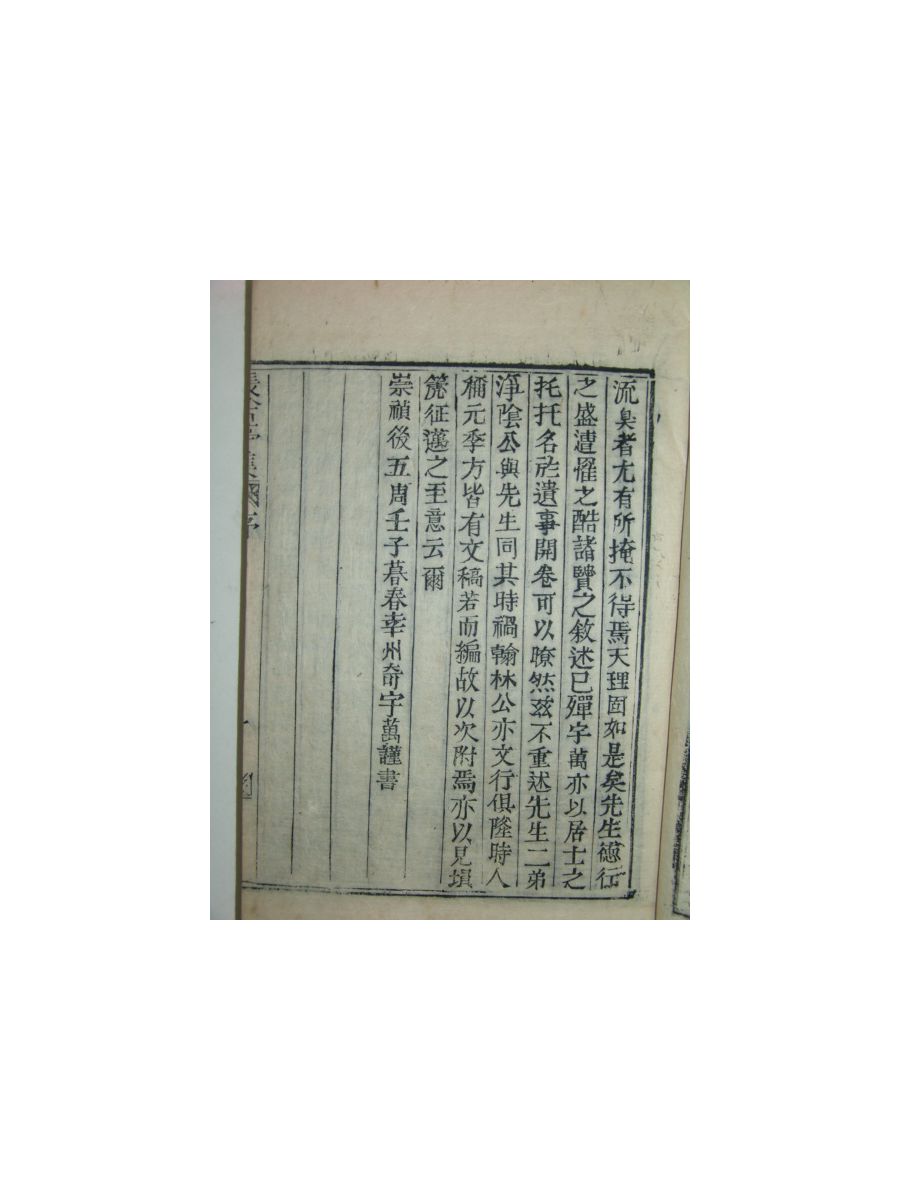 流臭者尤有所掩不得焉天理固如是矣先生德行
之盛遭罹之酷諸賢之敘述已殫宇萬亦以居士之
托托名於遺事開卷可以暸然玆不重述先生二弟
淨陰公與先生同其時禍翰林公亦文行俱隆時人
稱元季方皆有文稿若而編故以次附焉亦以見塤
篪征邁之至意云爾
崇禎後五周壬子暮春幸州奇宇萬謹書